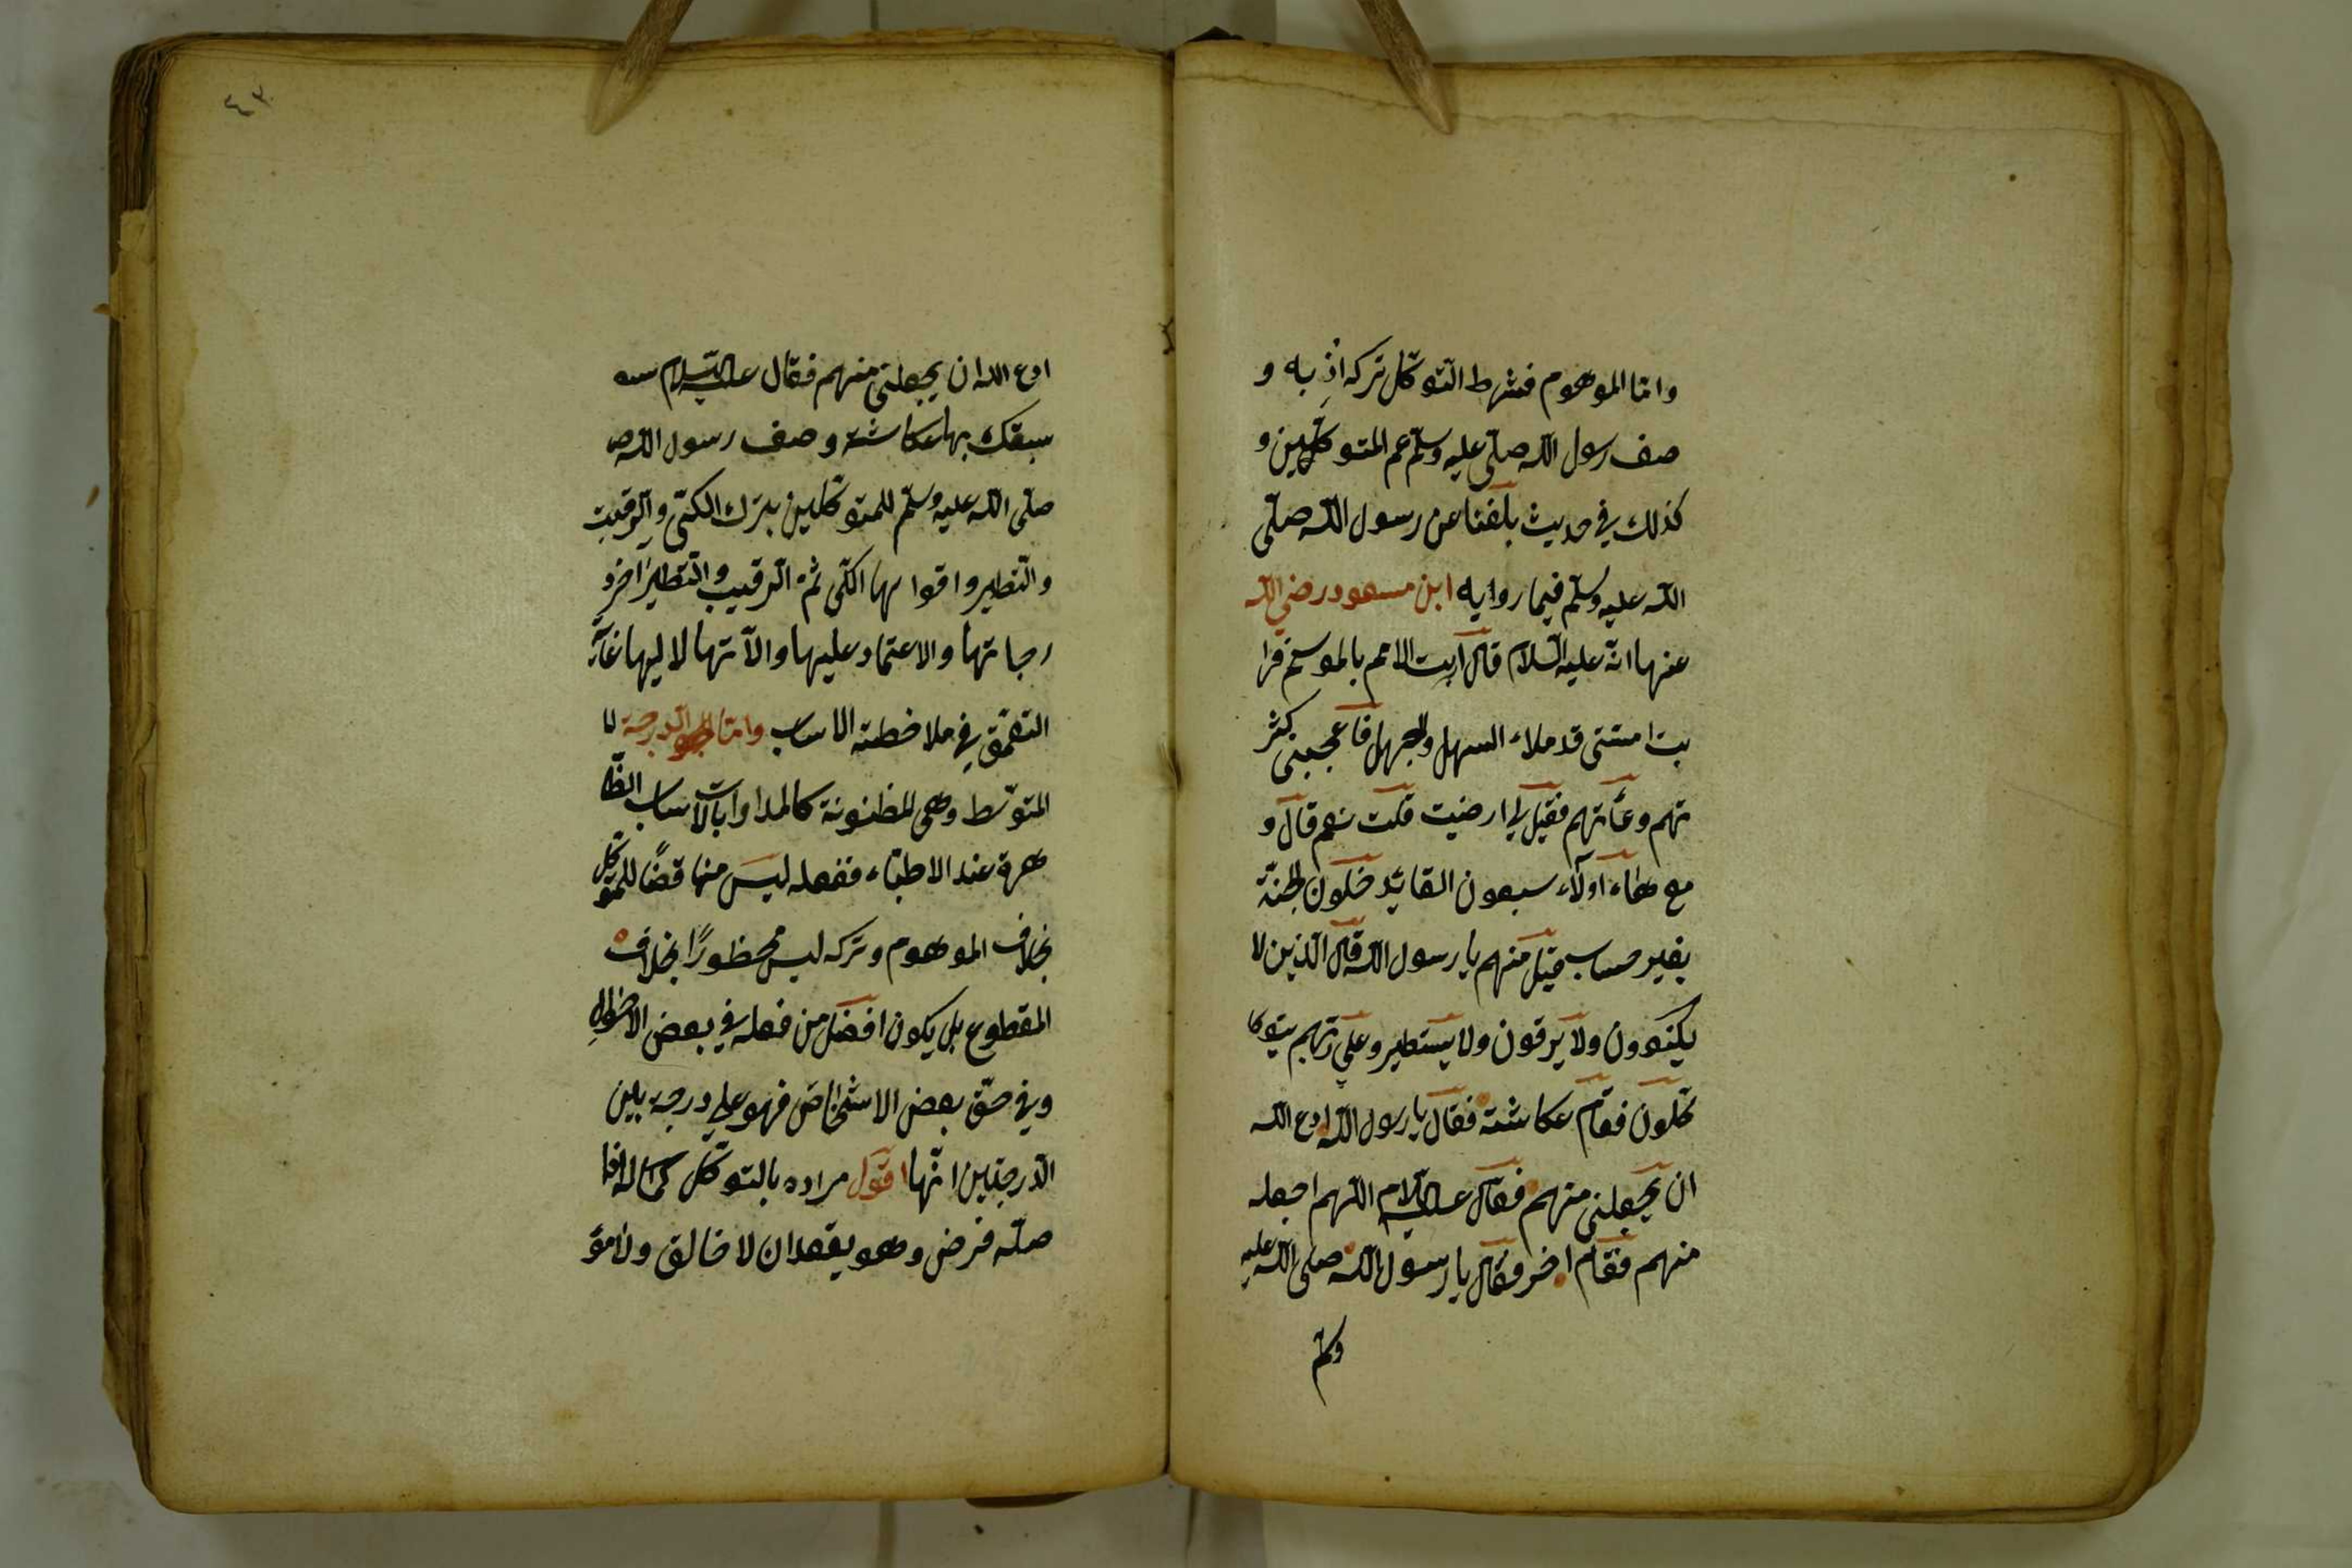 واما الموهوم فشرط التوكل تركه اذ به و
صف رسول الله صلى عليه وسلم عم المتوكلين و
كذلك في حديث بلغنا عن رسول الله صلى
الله عليه وسلم فيما روايه ابن مسعود رضي الله
عنها انه عليه السلام قال اريت الامم بالموسم فرا
يت امتى قد ملاء السهل والجبهل فاعجبنى كثر
تهم وهيأتهم فقيل لي ارضيت قلت نعم قال و
مع هؤلاء اولاء سبعون الفا يدخلون الجنة
بغير حساب قيل منهم يا رسول الله قال الذين لا
يكتوون ولا يرقون ولا يستطير وعلى ربهم يتوكا
كلون فقام عكاشة فقال يا رسول الله ادع الله
ان يجعلنى منهم فقال عليه السلام اللهم اجعله
منهم فقام اخر فقال يا رسول الله صلى الله عليه
وسلم
٤٣
ادع الله ان يجعلنى منهم فقال عليه السلام
سبقك بها عكاشة وصف رسول الله
صلى الله عليه وسلم للمتوكلين بترك الكى والرقيب
والتطير واقوا بها الكى ثم الرقيب والتطير اخر
رجاتها والاعتماد عليها والا تها لا ليها غاية
التعمق في ملاحظته الاساب واما الدرجة لا
المتوسط وهى المظنونة كالمداوات بالاساب الظا
هرة عند الاطباء ففعله ليس مناقضا للتوكل
بخلاف الموهوم وتركه ليس محظورا بخلاف
المقطوع بل يكون افضل من فعله في بعض الاحوال
وفي حق بعض الاشخاص فهو على درجه بين
الدرجتين انتها اقول مراده بالتوكل كماله افا
صله فرض وهو يقعد ان لا خالق ولا مؤ